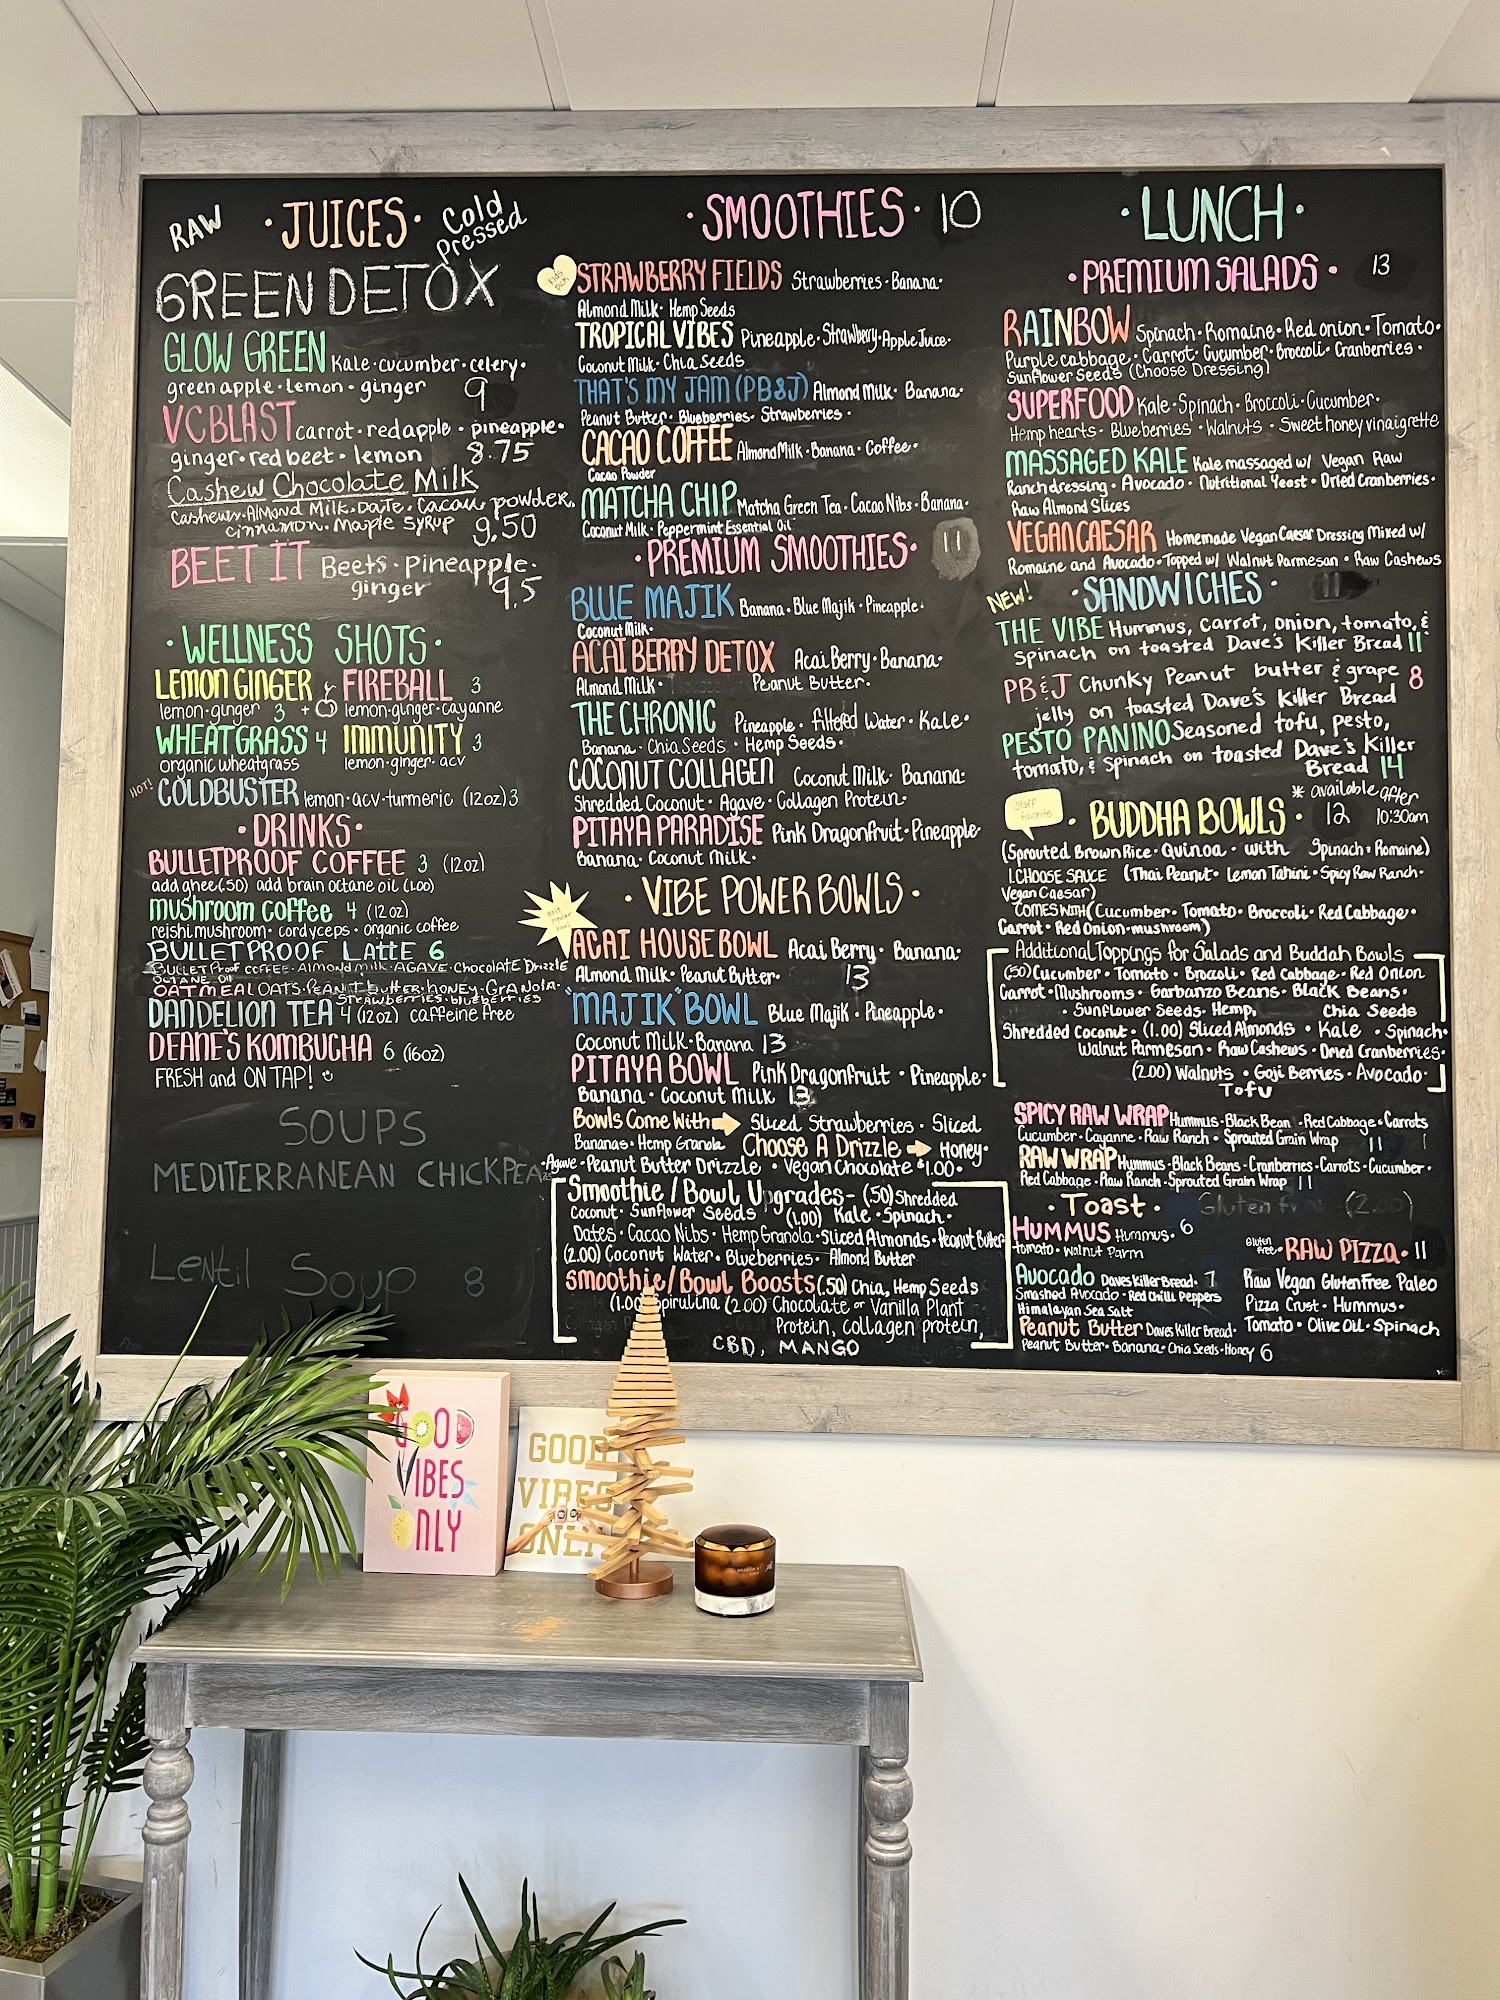 RAW · JUICES · Cold Pressed
GREEN DETOX
GLOW GREEN Kale · cucumber · celery ·
green apple · lemon · ginger 9
VC BLAST carrot · red apple · pineapple ·
ginger · red beet · lemon 8.75
Cashew Chocolate Milk
Cashews · Almond Milk · Date · Cacau powder,
cinnamon · Maple syrup 9.50
BEET IT Beets · Pineapple ·
ginger 9.5
· WELLNESS SHOTS ·
LEMON GINGER FIREBALL 3
lemon · ginger 3 + lemon · ginger · cayanne
WHEATGRASS 4 IMMUNITY 3
organic wheatgrass lemon · ginger · acv
HOT! COLDBUSTER lemon · acv · turmeric (12oz) 3
· DRINKS ·
BULLETPROOF COFFEE 3 (12oz)
add ghee (.50) add brain octane oil (1.00)
mushroom coffee 4 (12oz)
reishi mushroom · cordyceps · organic coffee
BULLETPROOF LATTE 6
BULLETProof coffee · Almond milk · AGAVE · Chocolate Drizzle
OCTANE Oil
OATMEAL OATS · PEANUT butter · honey · GRANOLA ·
Strawberries · blueberries
DANDELION TEA 4 (12oz) caffeine free
DEANE'S KOMBUCHA 6 (16oz)
FRESH and ON TAP!
SOUPS
MEDITERRANEAN CHICKPEA
Lentil Soup 8
· SMOOTHIES · 10
Kids Pick
STRAWBERRY FIELDS Strawberries · Banana ·
Almond Milk · Hemp Seeds
TROPICAL VIBES Pineapple · Strawberry · Apple Juice ·
Coconut Milk · Chia Seeds
THAT'S MY JAM (PB&J) Almond Milk · Banana ·
Peanut Butter · Blueberries · Strawberries ·
CACAO COFFEE Almond Milk · Banana · Coffee ·
Cacao Powder
MATCHA CHIP Matcha Green Tea · Cacao Nibs · Banana ·
Coconut Milk · Peppermint Essential Oil
· PREMIUM SMOOTHIES · 11
BLUE MAJIK Banana · Blue Majik · Pineapple ·
Coconut Milk ·
ACAI BERRY DETOX Acai Berry · Banana ·
Almond Milk · Peanut Butter ·
THE CHRONIC Pineapple · filtered Water · Kale ·
Banana · Chia Seeds · Hemp Seeds ·
COCONUT COLLAGEN Coconut Milk · Banana ·
Shredded Coconut · Agave · Collagen Protein ·
PITAYA PARADISE Pink Dragonfruit · Pineapple
Banana · Coconut Milk ·
· VIBE POWER BOWLS ·
ACAI HOUSE BOWL Acai Berry · Banana ·
Almond Milk · Peanut Butter · 13
"MAJIK" BOWL Blue Majik · Pineapple ·
Coconut Milk · Banana 13
PITAYA BOWL Pink Dragonfruit · Pineapple ·
Banana · Coconut Milk 13
Bowls Come With Sliced Strawberries · Sliced
Bananas · Hemp Granola Choose A Drizzle Honey ·
Agave · Peanut Butter Drizzle · Vegan Chocolate $1.00 ·
Smoothie / Bowl Upgrades - (.50) Shredded
Coconut · Sunflower Seeds (1.00) Kale · Spinach ·
Dates · Cacao Nibs · Hemp Granola · Sliced Almonds · Peanut Butter
(2.00) Coconut Water · Blueberries · Almond Butter
smoothie / Bowl Boosts (.50) Chia, Hemp Seeds
(1.00) Spirulina (2.00) Chocolate or Vanilla Plant
Protein, collagen protein,
CBD, MANGO
· LUNCH ·
· PREMIUM SALADS · 13
RAINBOW Spinach · Romaine · Red onion · Tomato ·
Purple cabbage · Carrot · Cucumber · Broccoli · Cranberries ·
Sunflower Seeds (Choose Dressing)
SUPERFOOD Kale · Spinach · Broccoli · Cucumber ·
Hemp hearts · Blueberries · Walnuts · Sweet honey vinaigrette
MASSAGED KALE Kale massaged w/ Vegan Raw
Ranch dressing · Avocado · Nutritional Yeast · Dried Cranberries ·
Raw Almond Slices
VEGAN CAESAR Homemade Vegan Caesar Dressing Mixed w/
Romaine and Avocado · Topped w/ Walnut Parmesan · Raw Cashews
NEW! · SANDWICHES ·
THE VIBE Hummus, carrot, onion, tomato, &
spinach on toasted Dave's Killer Bread 11
PB & J Chunky Peanut butter & grape 8
jelly on toasted Dave's Killer Bread
PESTO PANINO Seasoned tofu, pesto,
tomato, & spinach on toasted Dave's Killer
Bread 14
* available after
10:30am
Staff favorite
· BUDDHA BOWLS · 12
(Sprouted Brown Rice · Quinoa · with Spinach · Romaine)
1. CHOOSE SAUCE (Thai Peanut · Lemon Tahini · Spicy Raw Ranch ·
Vegan Caesar)
COMES WITH (Cucumber · Tomato · Broccoli · Red Cabbage ·
Carrot · Red Onion · mushroom)
Additional Toppings for Salads and Buddah Bowls
(.50) Cucumber · Tomato · Broccoli · Red Cabbage · Red Onion
Carrot · Mushrooms · Garbanzo Beans · Black Beans ·
· Sunflower Seeds · Hemp, Chia Seeds
Shredded Coconut · (1.00) Sliced Almonds · Kale · Spinach ·
Walnut Parmesan · Raw Cashews · Dried Cranberries ·
(2.00) Walnuts · Goji Berries · Avocado ·
Tofu
SPICY RAW WRAP Hummus · Black Bean · Red Cabbage · Carrots
Cucumber · Cayanne · Raw Ranch · Sprouted Grain Wrap 11
RAW WRAP Hummus · Black Beans · Cranberries · Carrots · Cucumber ·
Red Cabbage · Raw Ranch · Sprouted Grain Wrap 11
· Toast · Gluten free (2.00)
HUMMUS Hummus · 6
tomato · Walnut Parm
Avocado Daves Killer Bread · 7
Smashed Avocado · Red Chilli Peppers
Himalayan Sea Salt
Peanut Butter Daves Killer Bread ·
Peanut Butter · Banana · Chia Seeds · Honey 6
Gluten free · RAW PIZZA · 11
Raw Vegan Gluten Free Paleo
Pizza Crust · Hummus ·
Tomato · Olive Oil · Spinach
GOOD
VIBES
ONLY
GOOD
VIBES
ONLY